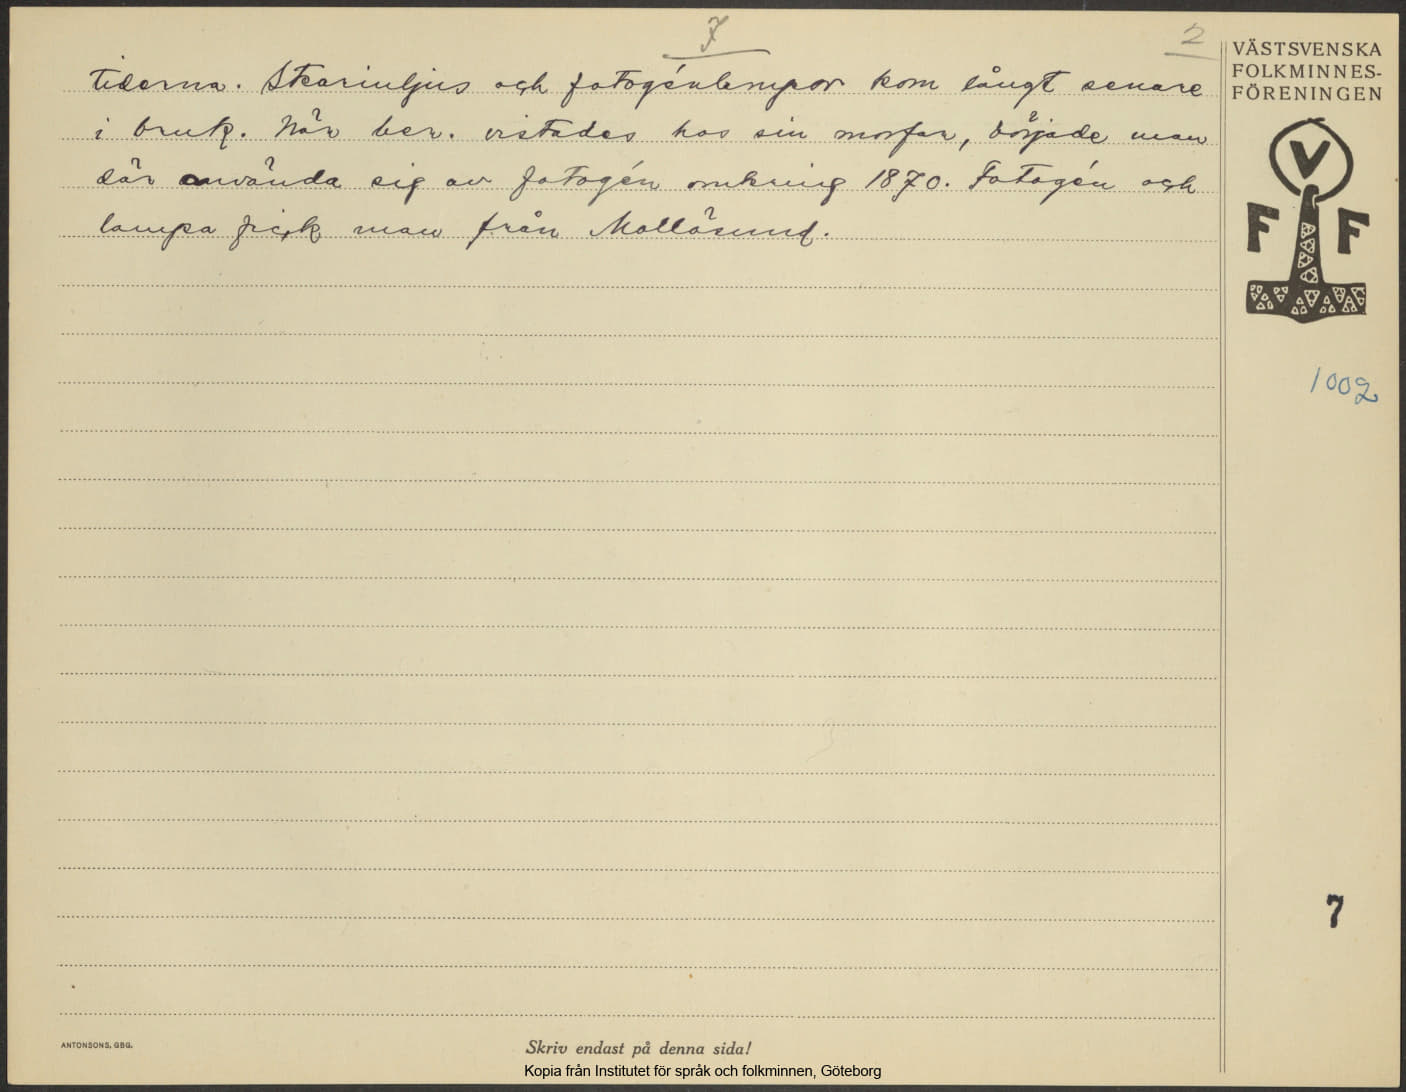 7
2
tiderna. Stearinljus och fotogénlampor kom långt senare
i bruk. När ber. vistades hos sin morfar, började man
där använda sig av fotogén omkring 1870. Fotogén och
lampa fick man från Mollösund.
VÄSTSVENSKA
FOLKMINNES-
FÖRENINGEN
V
F F
1002
7
ANTONSONS, GBG.
Skriv endast på denna sida!
Kopia från Institutet för språk och folkminnen, Göteborg